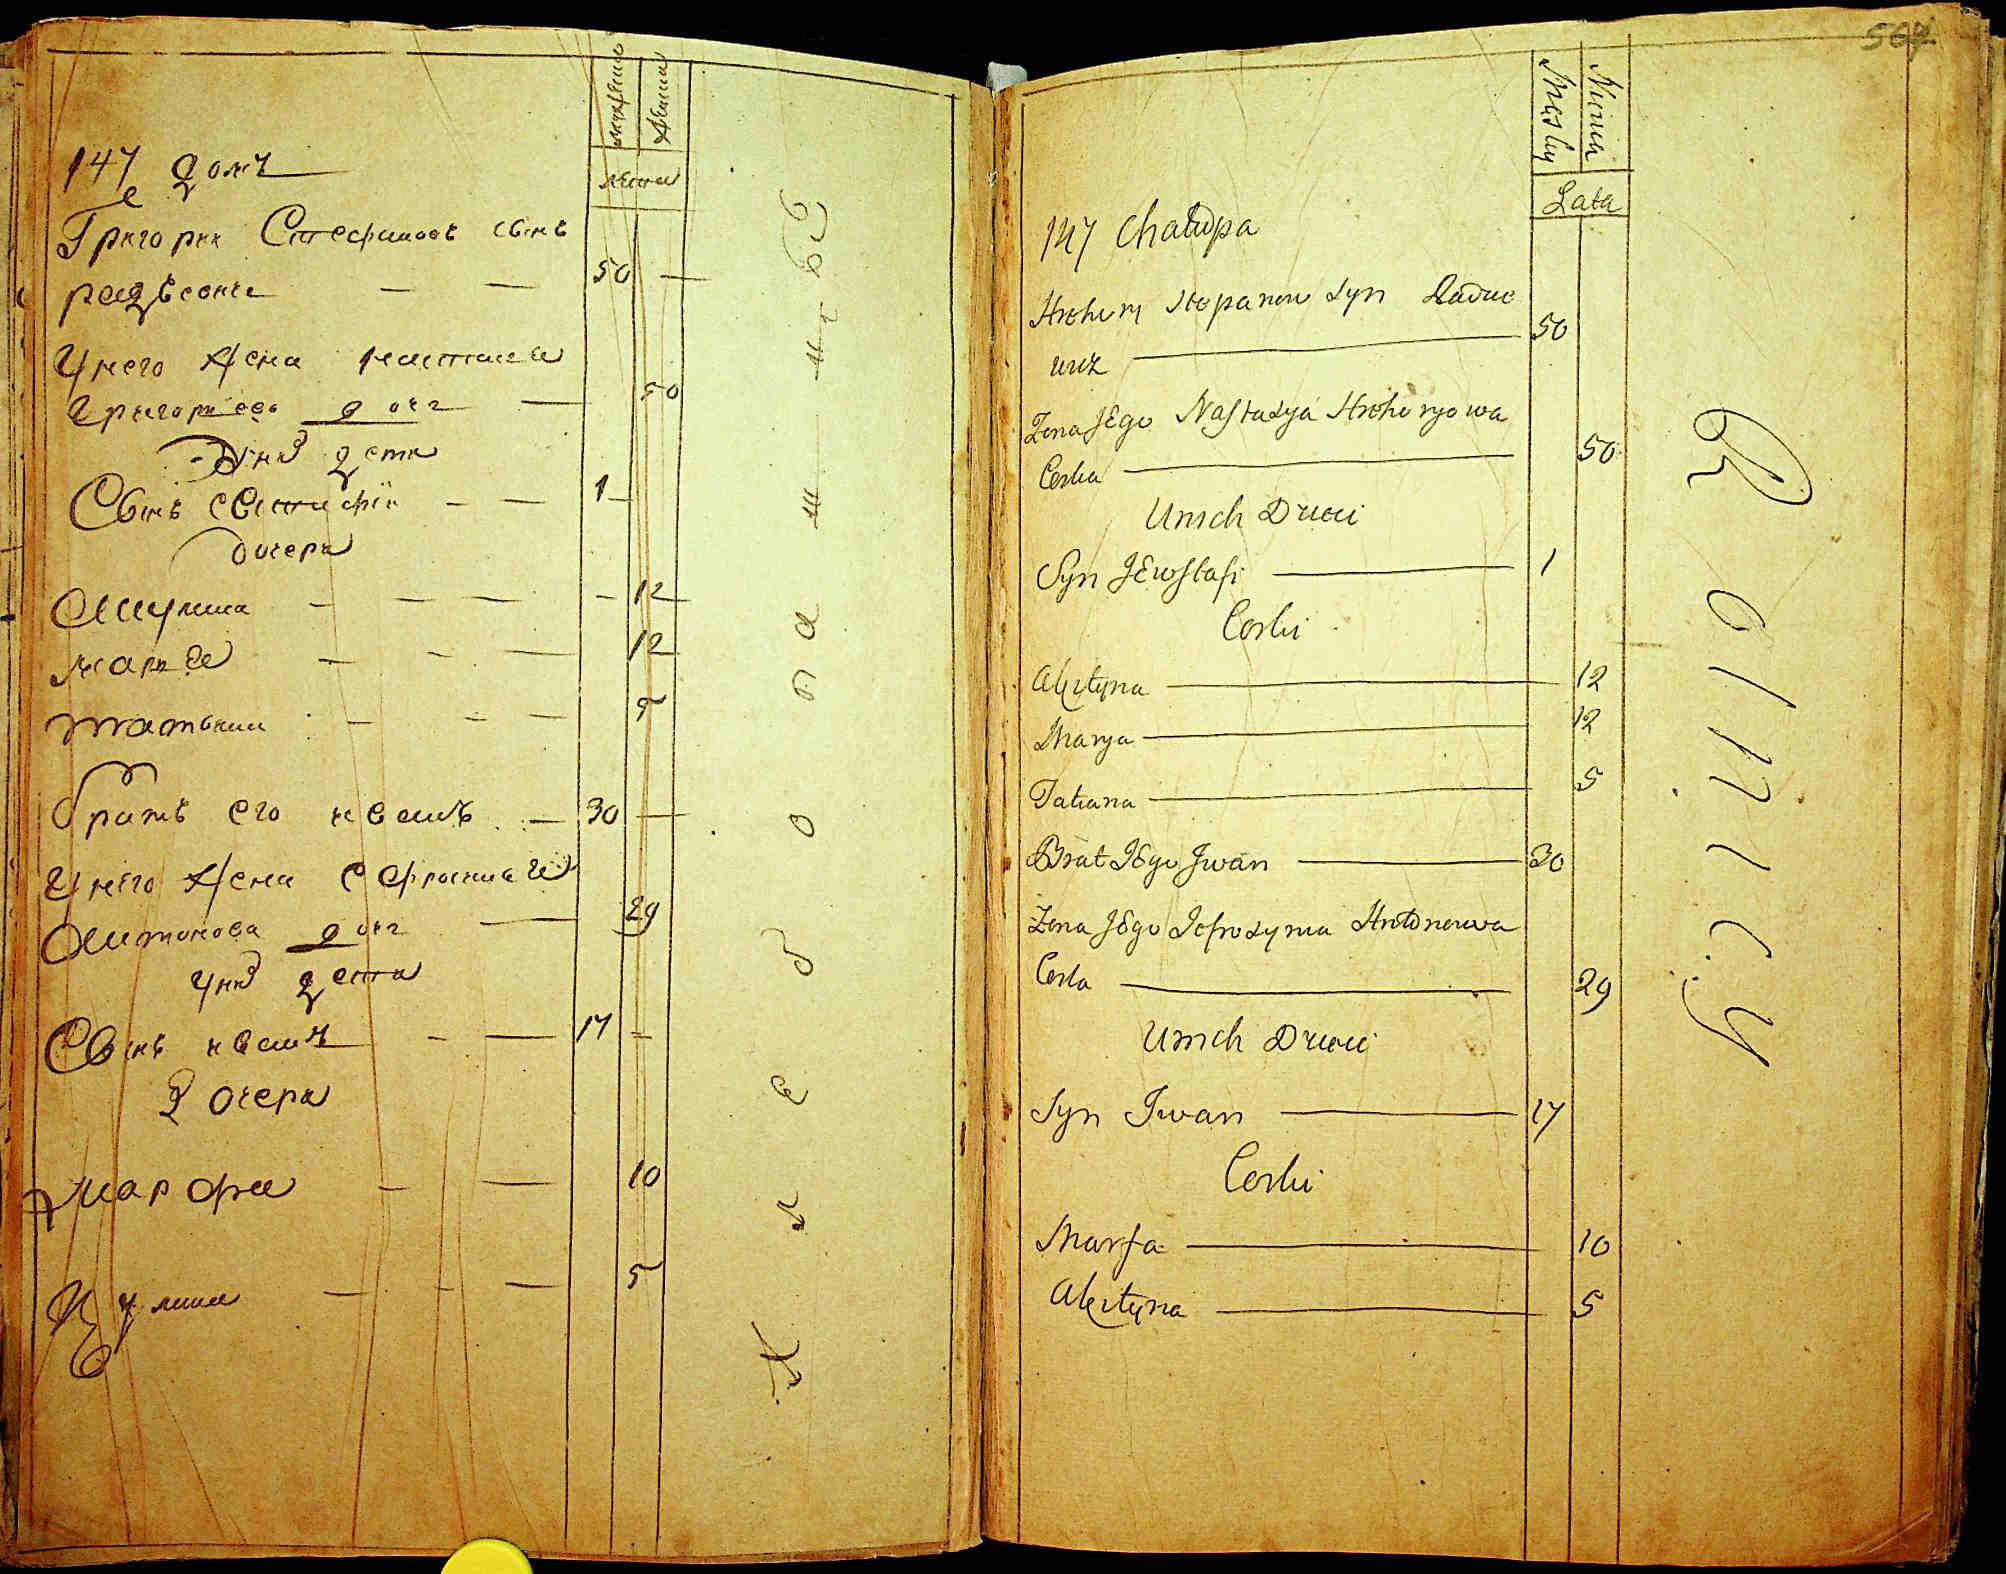 мужеска
женска
лета
147 е домъ
Григории Стефановъ сынъ
радѣвончи — — 50 —
У него жена настасея
григориева дочъ — 50
У них дети
Сынъ евстафїи — — 1 —
дочери
Акулина — — — — 12
мария — — — 12
татьяна — — — 5
братъ его иванъ — 30 —
У него жена ефросинея
Антонова дочъ — 29
У них дети
Сынъ иванъ — — 17 —
дочери
марфа — — 10
Акулина — — — 5
Хлебопашецъ
567
Męsky
Niewia
Lata
147 Chałupa
Hrehory Stepanow Syn Radue
wicz — 50
Żona Jego Nastasya Hrehoryowa
Corka — 50
U nich Dzieci
Syn Jewstafi — 1
Corki
Akulyna — 12
Marya — 12
Tatiana — 5
Brat Jego Jwan — 30
Żona Jego Jefrosynia Antonowa
Corka — 29
U nich Dzieci
Syn Jwan — 17
Corki
Marfa — 10
Akulyna — 5
Rolniczy